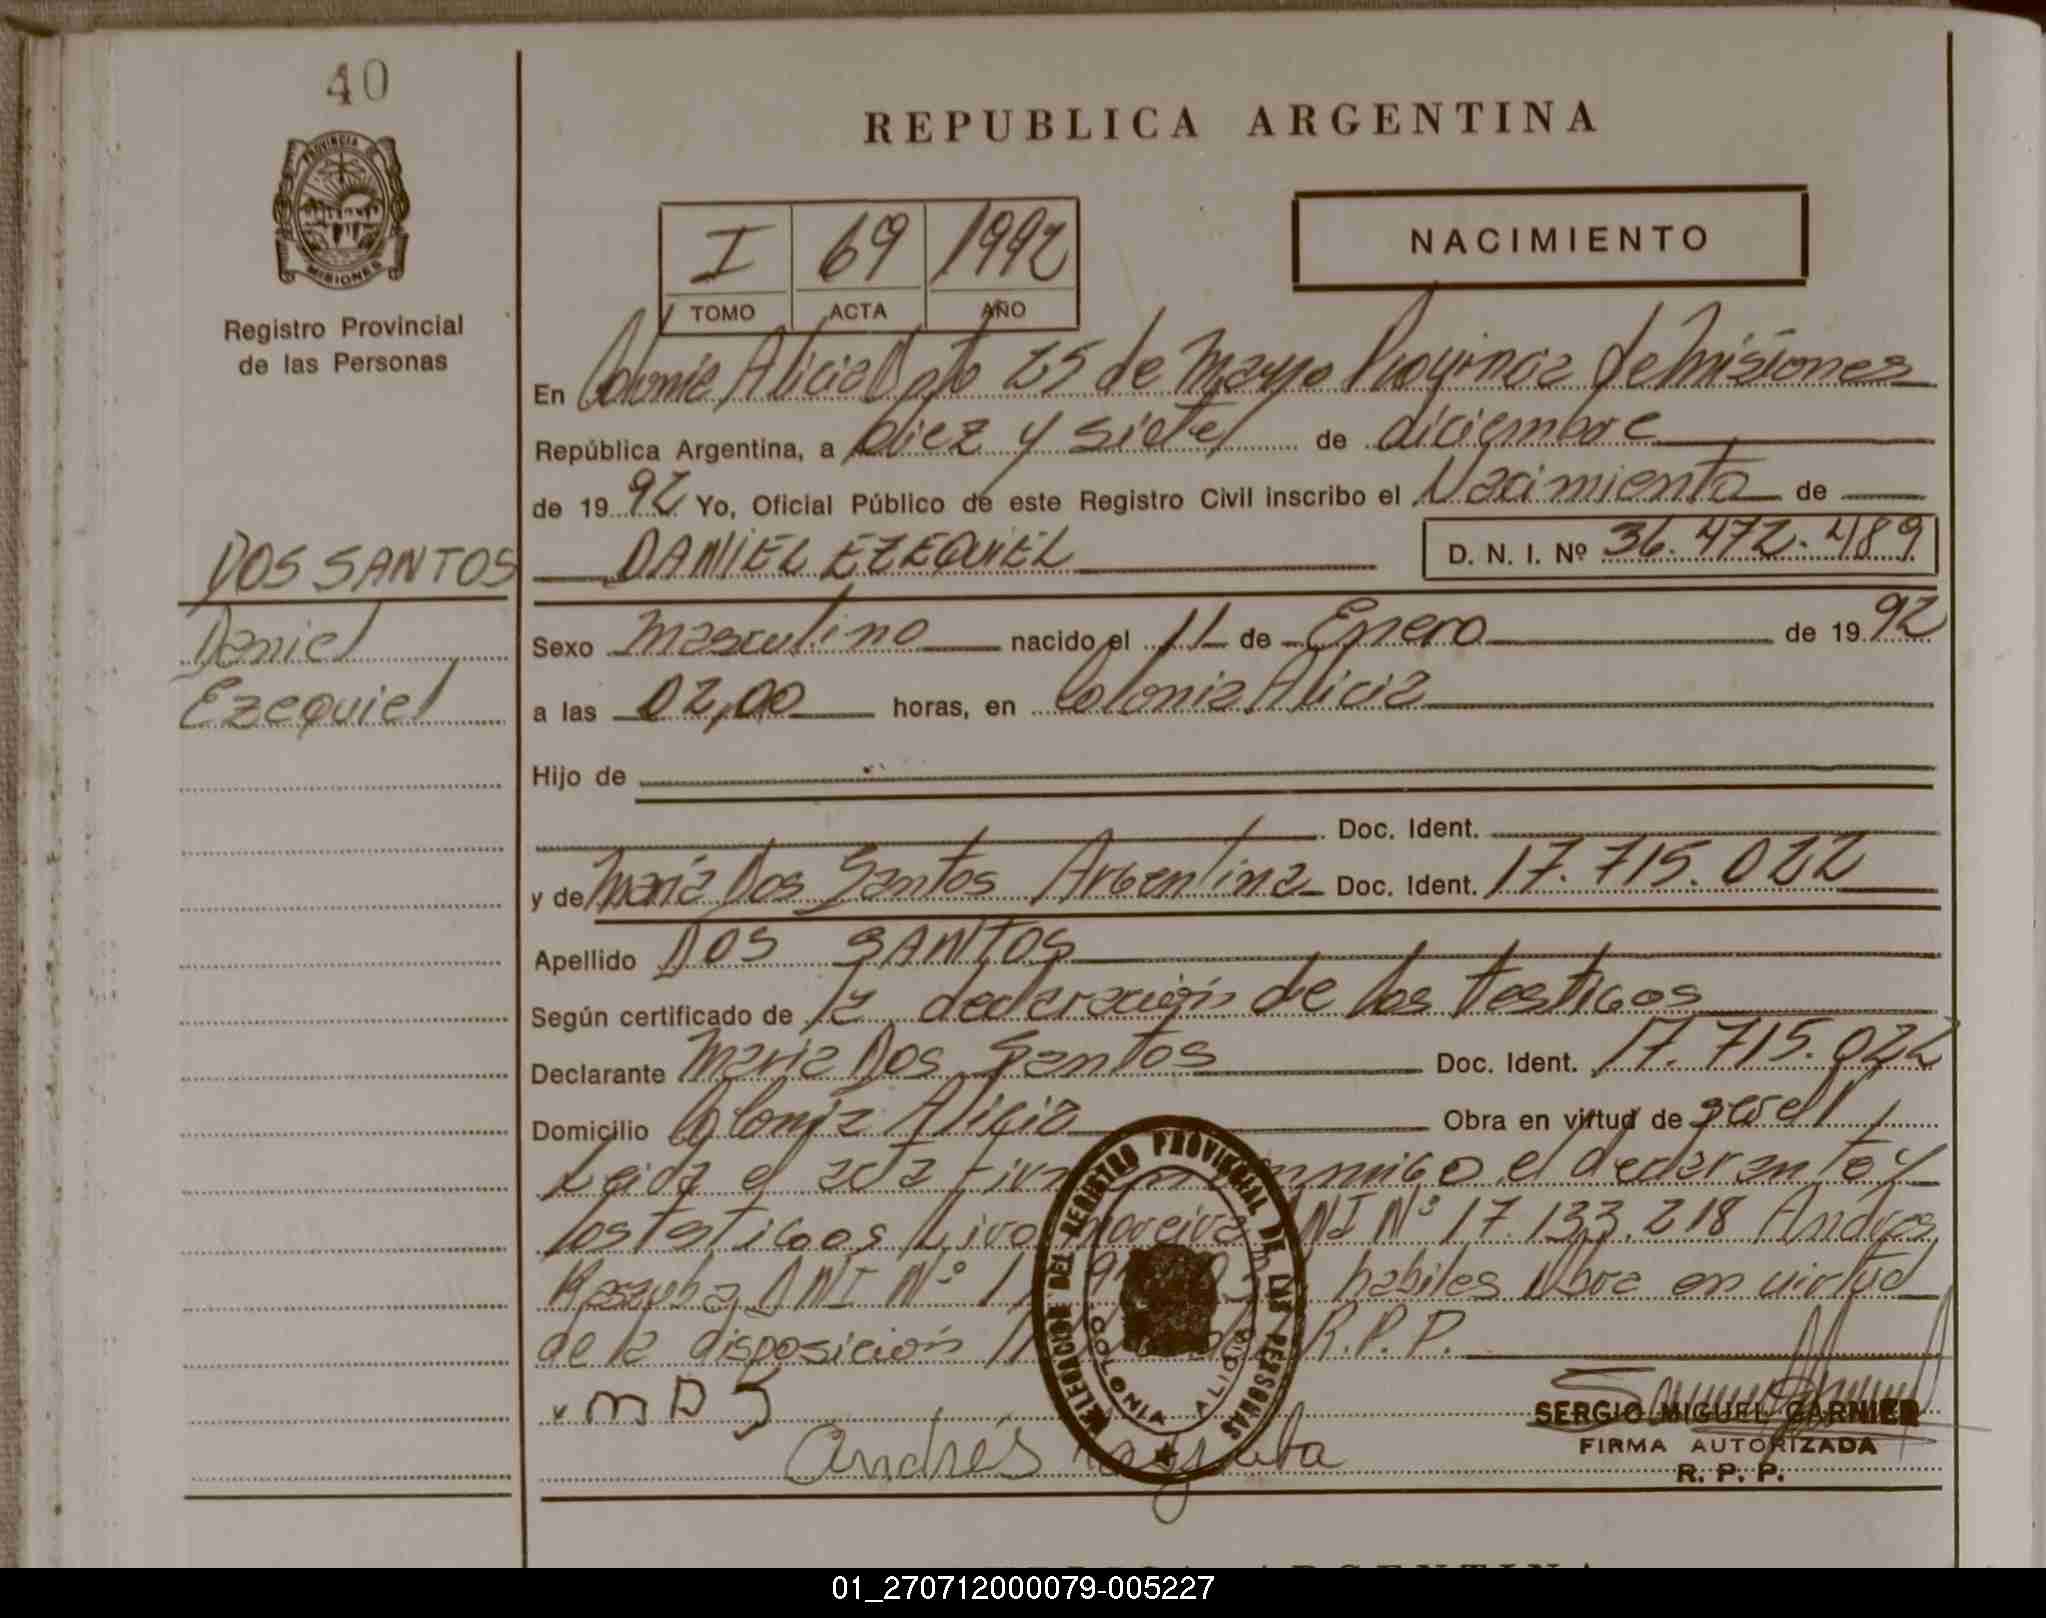 40
REPUBLICA ARGENTINA
PROVINCIA DE
MISIONES
Registro Provincial
de las Personas
I 69 1992
TOMO ACTA AÑO
NACIMIENTO
En Colonia Alicia Dpto 25 de Mayo Provincia de Misiones
República Argentina, a diez y siete de diciembre
de 1992 Yo, Oficial Público de este Registro Civil inscribo el Nacimiento de
DOS SANTOS
DANIEL EZEQUIEL D. N. I. Nº 36.472.489
Daniel
Ezequiel
Sexo masculino nacido el 11 de Enero de 1992
a las 02,00 horas, en Colonia Alicia
Hijo de
Doc. Ident.
y de María Dos Santos Argentina Doc. Ident. 17.715.022
Apellido DOS SANTOS
Según certificado de la declaración de los testigos
Declarante Maria Dos Santos Doc. Ident. 17.715.022
Domicilio Colonia Alicia Obra en virtud de
Leida el acta conmigo el declarante y
los testigos Moreira DNI Nº 17.133.218 Andres
DNI Nº habiles Obra en virtud
de la disposición R.P.P.
DELEGACION DEL REGISTRO PROVINCIAL DE LAS PERSONAS
COLONIA ALICIA
M D S
Andrés
SERGIO MIGUEL GARNIER
FIRMA AUTORIZADA
R. P. P.
01_270712000079-005227